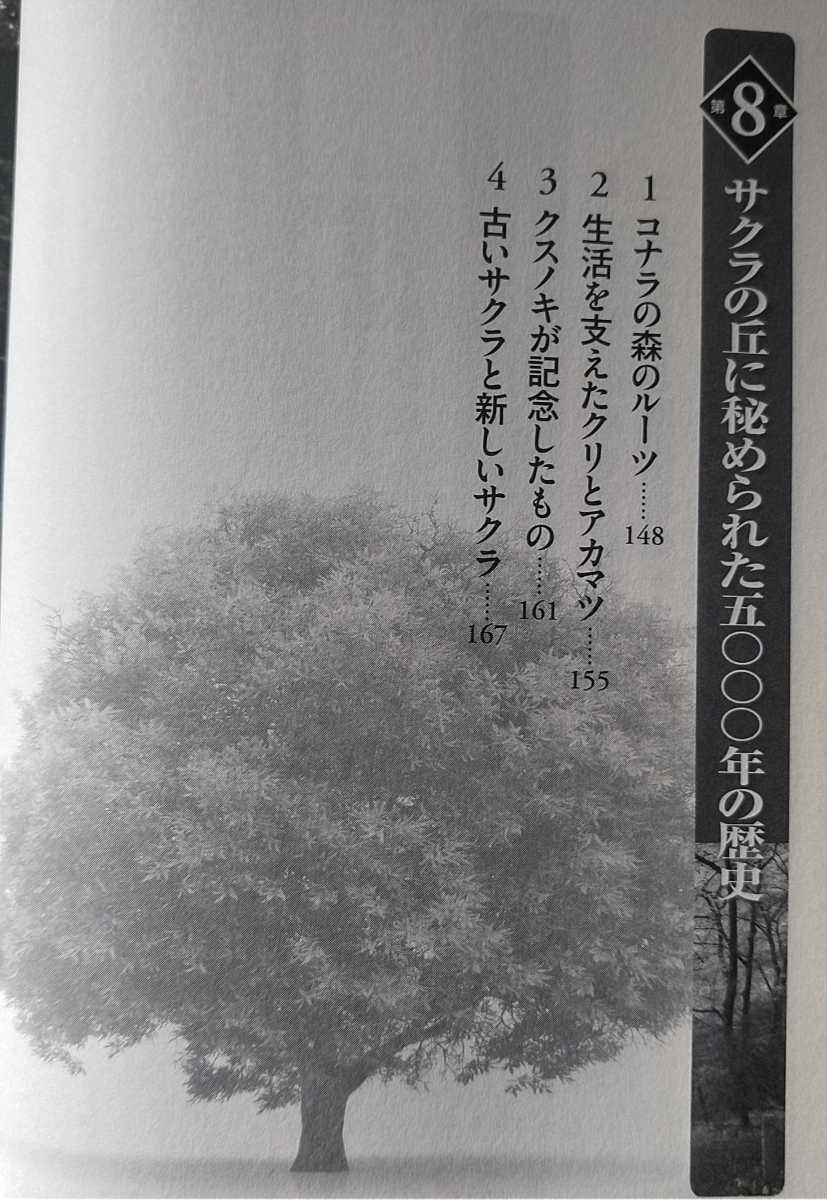 第8章
サクラの丘に秘められた五〇〇〇年の歴史
1 コナラの森のルーツ……148
2 生活を支えたクリとアカマツ……155
3 クスノキが記念したもの……161
4 古いサクラと新しいサクラ……167